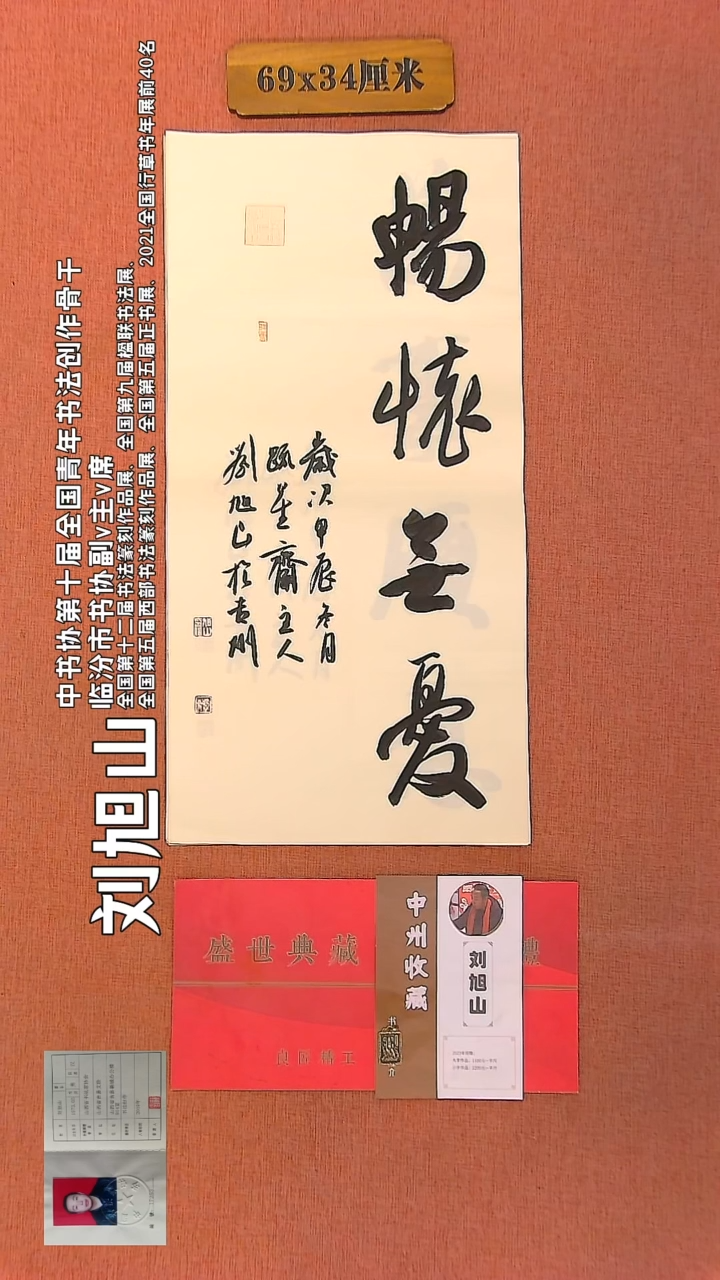 69x34厘米
暢懷無憂
歲次甲辰冬月
甌笙齋主人
劉旭山於吉州
中书协第十届全国青年书法创作骨干
临汾市书协副v主v席
全国第十二届书法篆刻作品展、全国第九届楹联书法展、
全国第五届西部书法篆刻作品展、全国第五届正书展、2021全国行草书年展前40名
刘旭山
盛世典藏
良匠精工
中州收藏
书
介
刘旭山
禮